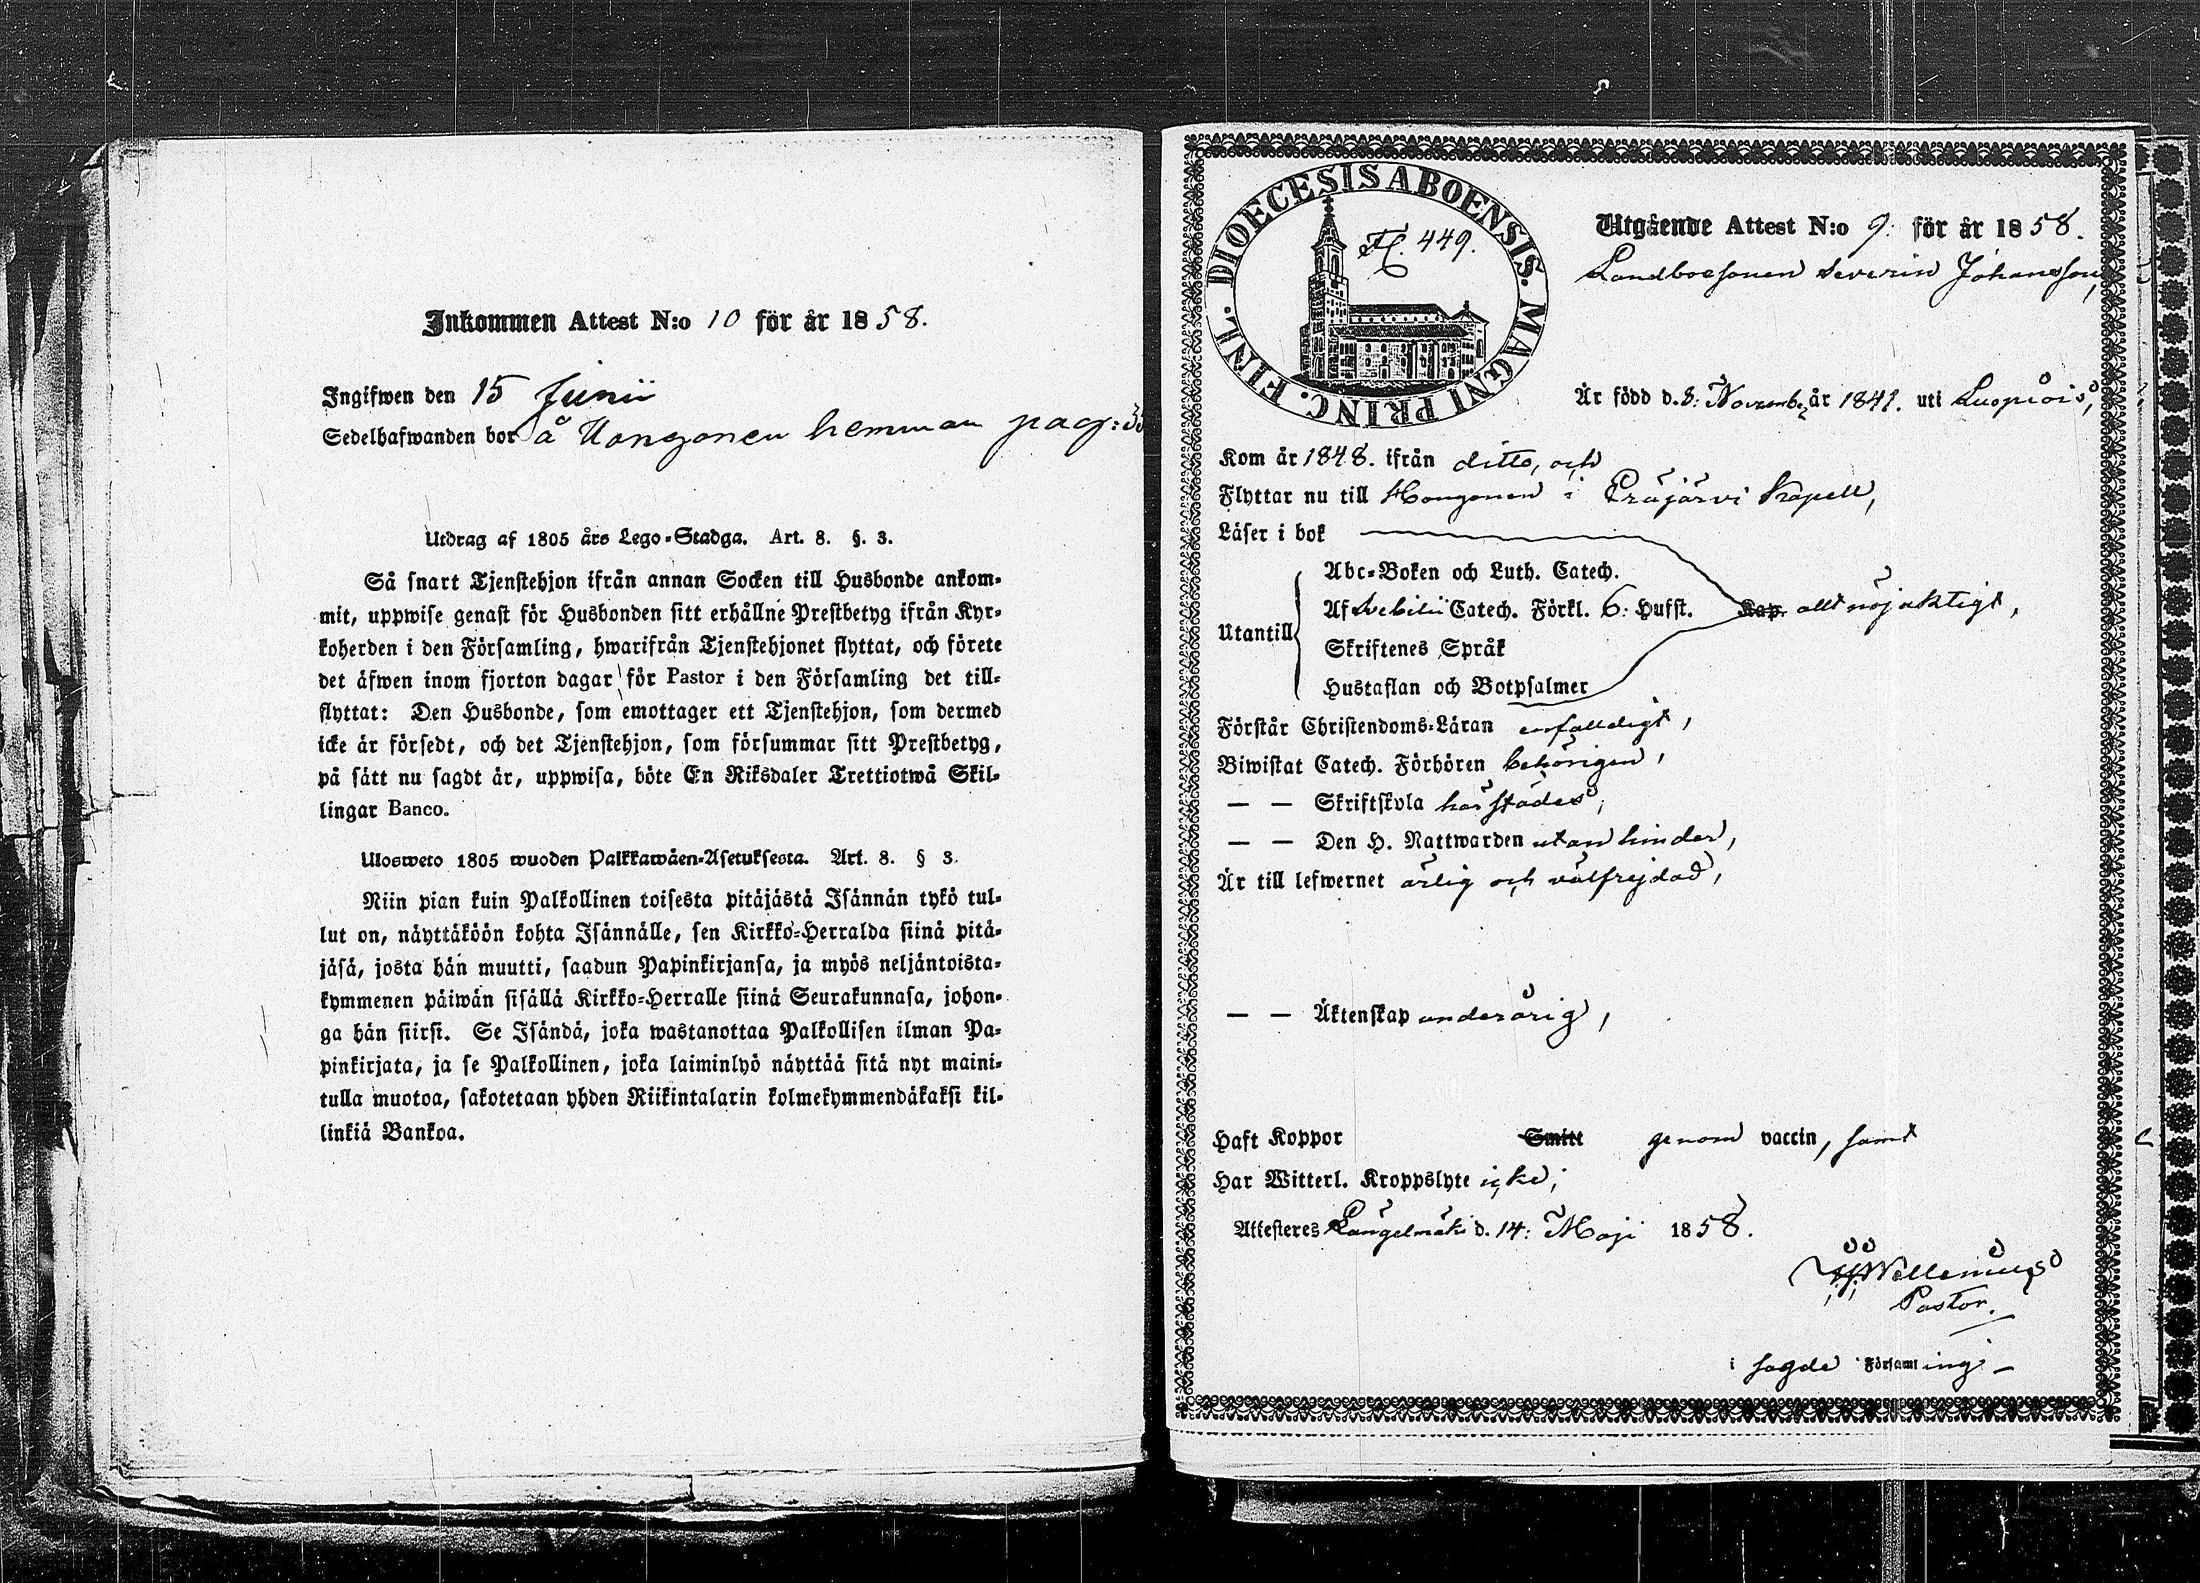 Inkommen Attest N:o 10 för år 1858.
Ingifwen den 15 Junii
Sedelhafwanden bor å Uongonen hemman pag:
Utdrag af 1805 års Lego-Stadga. Art. 8. §. 3.
Så snart Tjenstehjon ifrån annan Socken till Husbonde ankom-
mit, uppwise genast för Husbonden sitt erhållne Prestbetyg ifrån Kyr-
koherden i den Församling, hwarifrån Tjenstehjonet flyttat, och förete
det äfwen inom fjorton dagar för Pastor i den Församling det till-
flyttat: Den Husbonde, som emottager ett Tjenstehjon, som dermed
icke är försedt, och det Tjenstehjon, som försummar sitt Prestbetyg,
på sätt nu sagdt är, uppwisa, böte En Riksdaler Trettiotwå Skil-
lingar Banco.
Ulosweto 1805 wuoden Palkkawäen-Asetuksesta. Art. 8. § 3.
Niin pian kuin Palkollinen toisesta pitäjästä Isännän tykö tul-
lut on, näyttäköön kohta Isännälle, sen Kirkko-Herralda siinä pitä-
jäsä, josta hän muutti, saadun Papinkirjansa, ja myös neljäntoista-
kymmenen päiwän sisällä Kirkko-Herralle siinä Seurakunnasa, johon-
ga hän siirsi. Se Isändä, joka wastanottaa Palkollisen ilman Pa-
pinkirjata, ja se Palkollinen, joka laiminlyö näyttää sitä nyt maini-
tulla muotoa, sakotetaan yhden Riikintalarin kolmekymmendäkaksi kil-
linkiä Bankoa.
DIOECESIS ABOENSIS. MAGNI PRINC. FINL.
449.
Utgående Attest N:o 9. för år 1858.
Landboesonen Severin Johansson,
Är född d. 8: Novemb. år 1841. uti Luopiois,
Kom år 1848. ifrån ditto, och
Flyttar nu till Hongonen i Eräjärvi Kapell,
Läser i bok
Abc-Boken och Luth. Catech.
Utantill Af Svebilii Catech. Förkl. 6: Hufst. Kap. allt nöjaktigt,
Skriftenes Språk
Hustaflan och Botpsalmer
Förstår Christendoms-Läran enfalldigt,
Biwistat Catech. Förhören behörigen,
— — Skriftskola härstädes,
— — Den H. Nattwarden utan hinder,
Är till lefwernet ärlig och välfrejdad,
— — Äktenskap underårig,
Haft Koppor Smitt genom vaccin, samt
Har Witterl. Kroppslyte icke;
Attesteres Längelmäki d. 14: Maji 1858.
Pastor.
i sagde Församling —